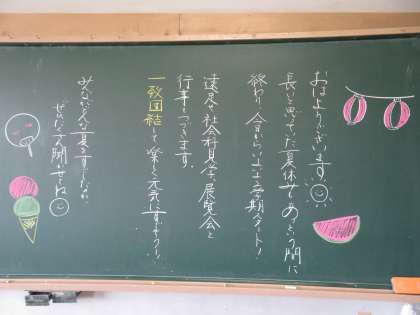 おはようございます。
長いと思っていた夏休みもあっという間に
終わり、今日から二学期スタート！
遠足や社会科見学、展覧会と
行事もつづきます。
一致団結して楽しく元気にすごそう！
みんなどんな夏をすごしたか、
ぜひたくさん聞かせてね